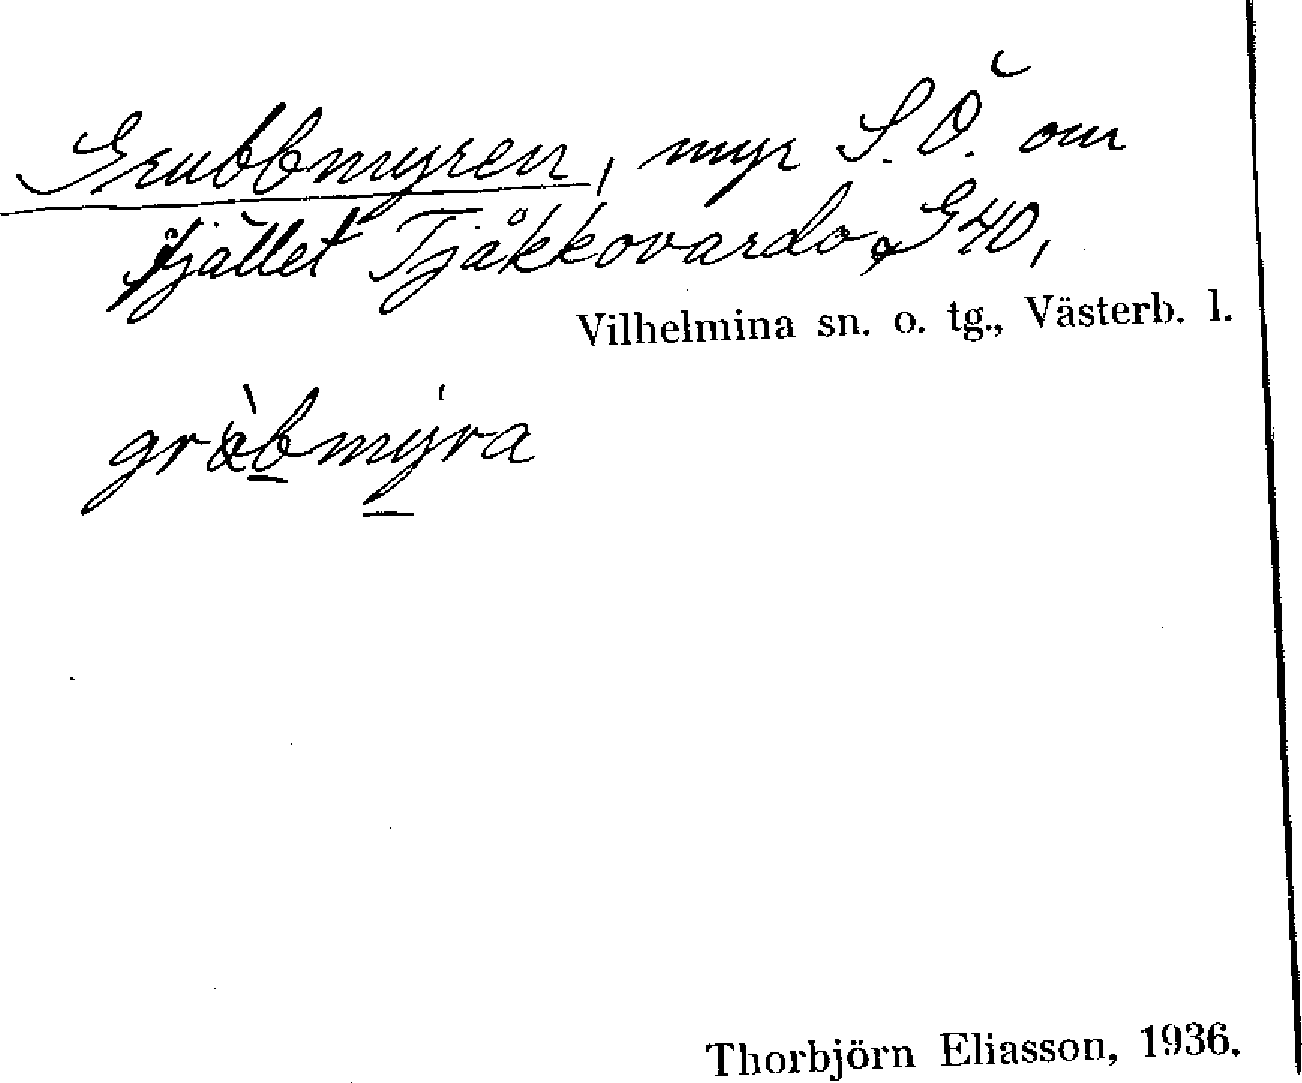 Grubbmyren, myr S.Ö. om
fjället Tjåkkovardo, G40,
Vilhelmina sn. o. tg., Västerb. l.
Thorbjörn Eliasson, 1936.